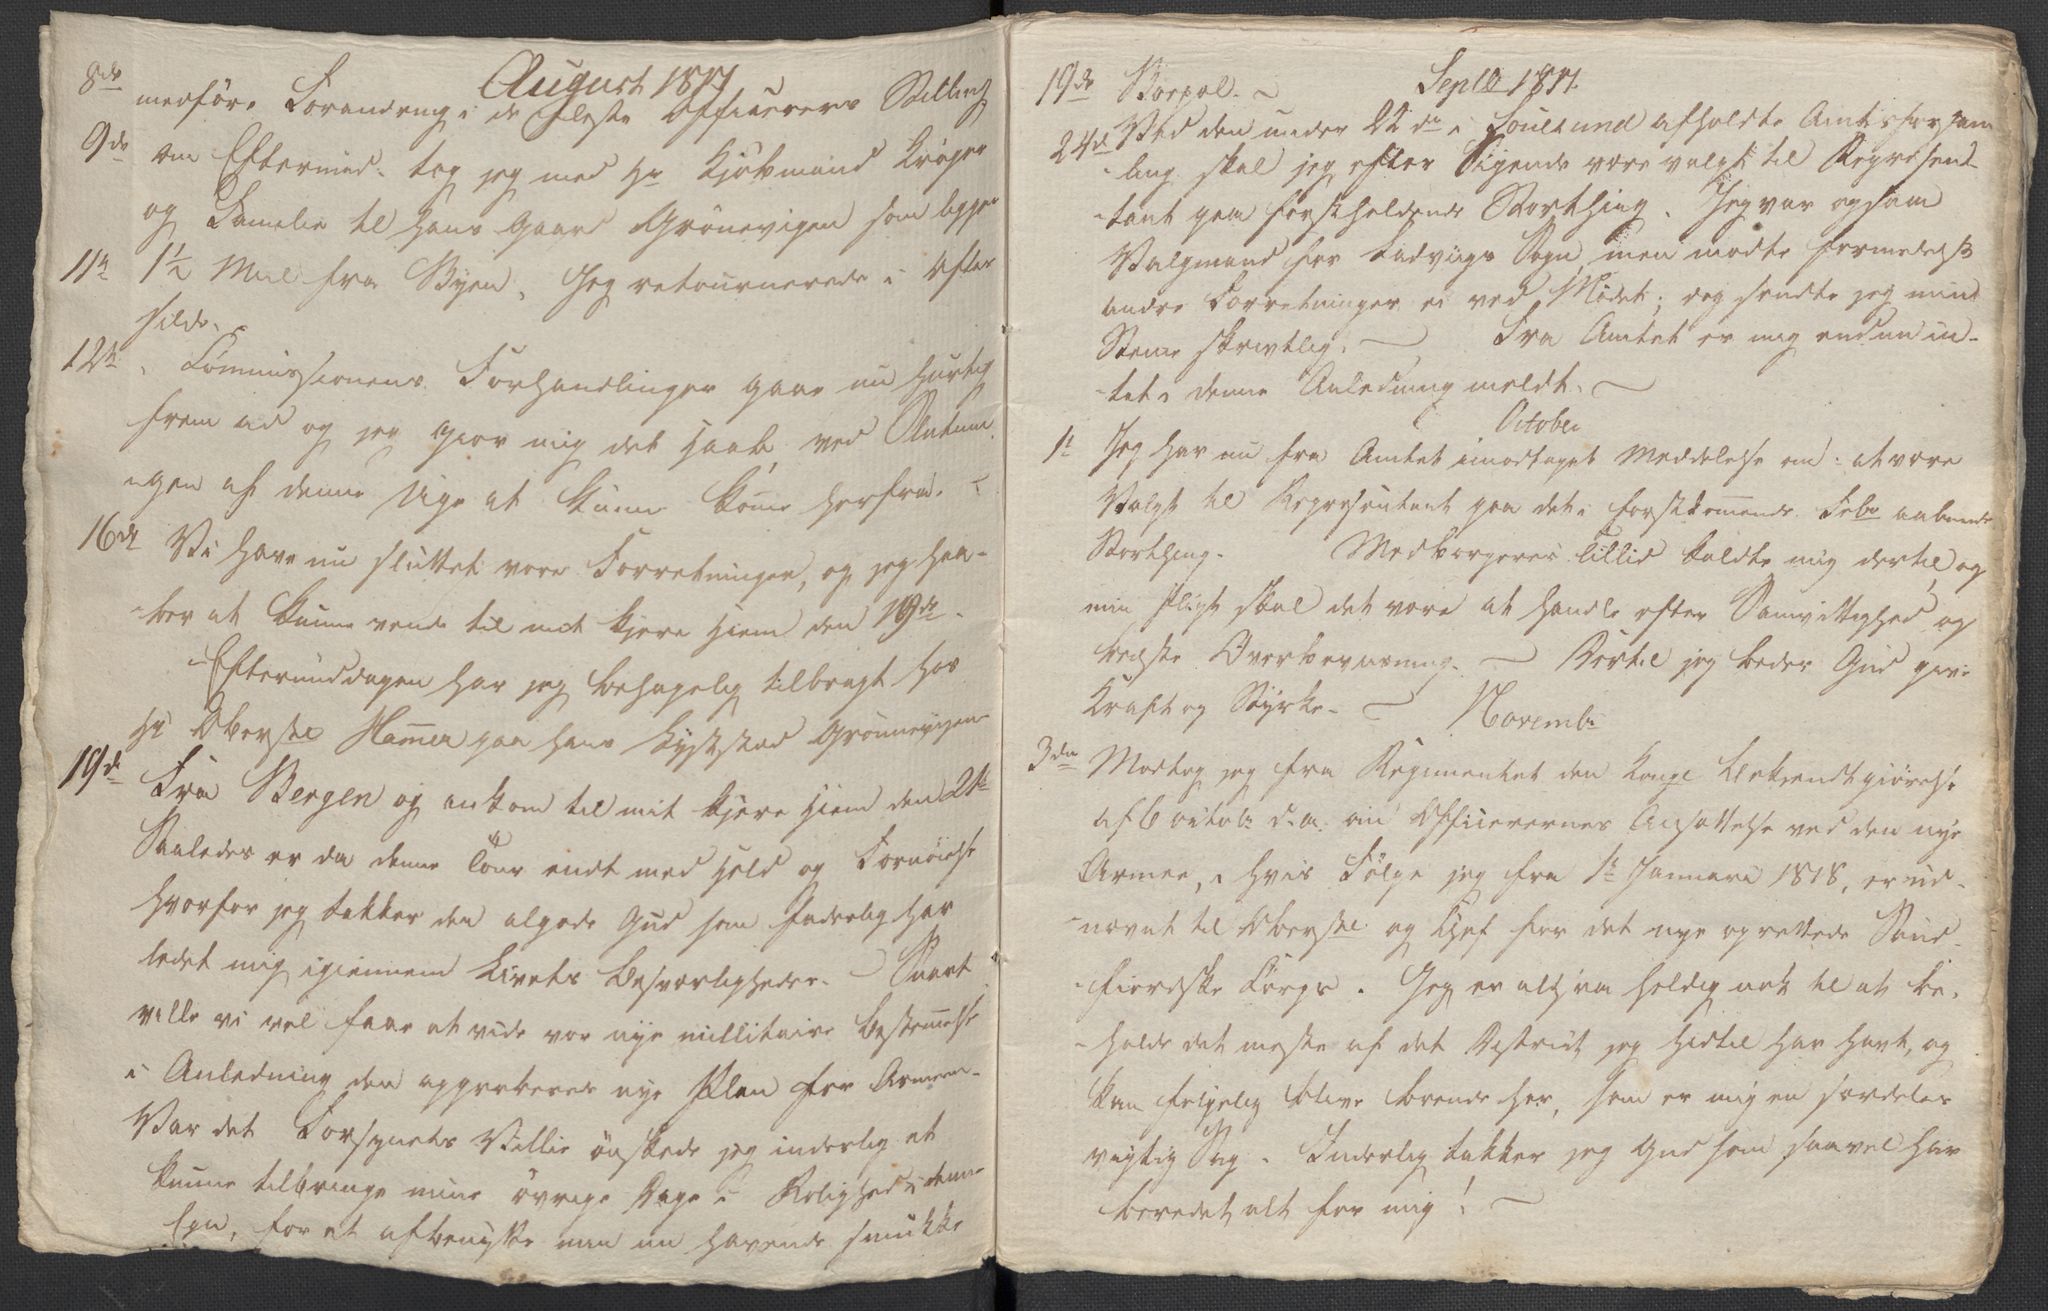 August 1817
8de medföre Forandring i de fleste Officerers Stilling
9de om Eftermid. tog jeg med Hr Kjöbmand Krüger
og Familie til hans Gaard Grönevigen som ligger
11te 1½ Miil fra Byen. Jeg retournerede i Aften
silde.
12te Commissionens Forhandlinger gaae nu hurtig
frem ad og jeg gior mig det Haab ved Slutnin
gen af denne Uge at kunne komme herfra.
16de Vi have nu sluttet vore Forretninger, og jeg haa-
ber at kunne vende til mit kjere Hiem den 19de.
Eftermiddagen har jeg behagelig tilbragt hos
Hr Oberstl Hammer paa hans Lyststed Grönnevigen
19de Fra Bergen og ankom til mit kjere Hiem den 21de
Saaledes er da denne Tour endt med Held og Fornöielse
hvorfor jeg takker den algode Gud som faderlig har
ledet mig igiennem Livets Besværligheder. Snart
ville vi vel faae at vide vor nye millitaire Bestemmelse
i Anledning den approberede nye Plan for Armeen.
Var det Forsynets Villie önskede jeg inderlig at
kunne tilbringe mine övrige Dage i Rolighed i denne
Egn, for at afbenytte min nu havende smukke
Septb 1817.
19de Borgol.
24de Ved den under 22de i Förde afholdte Amtsforsam
ling skal jeg efter Sigende være valgt til Represen-
tant paa forstholdende Storthing. Jeg var ogsaa
Valgmand for Ladvigs Sogn men mödte formedelst
andre Forretninger ei ved Mödet; dog sendte jeg min
Stemme skrivtlig. Fra Amtet er mig endnu in-
tet i denne Anledning meldt.
October
1te Jeg har nu fra Amtet imodtaget Meddelelse om: at være
Valgt til Representant paa det i forstkommende Febr aabnende
Storthing. Medborgeres Tillid kaldte mig dertil og
min Pligt skal det være at handle efter Samvittighed og
bedste Overbeviisning. Dertil jeg beder Gud give
Kraft og Styrke.
Novembr
3den Modtog jeg fra Regimentet den Kongl Bekjendtgiörelse
af 6 Octobr d. a. om Officerernes Ansættelse ved den nye
Armee, i hvis Fölge jeg fra 1te Januarii 1818, er ud-
nævnt til Oberstl og Chef for det nye oprettede Sönd-
fiordske Corps. Jeg er altsaa heldig nok til at be-
holde det meste af det District jeg hidtil har havt, og
kan følgelig blive boende her, som er mig en særdeles
vigtig Sag. Inderlig takker jeg Gud som saavel har
beredet alt for mig!